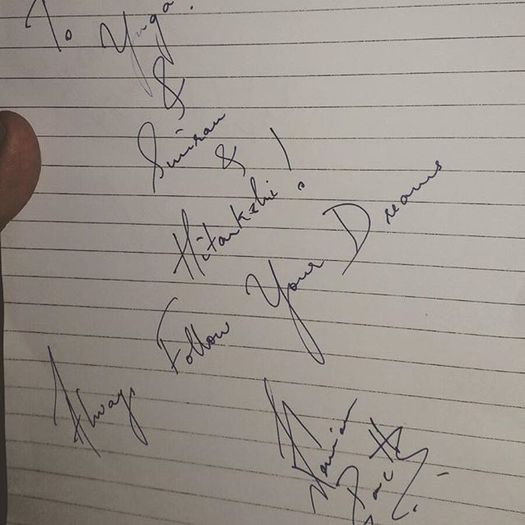 To Yuga
&
Simran
&
Hitankshi!
Always Follow Your Dreams